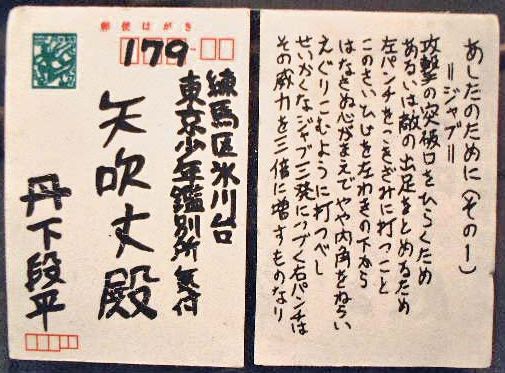 郵便はがき
179
練馬区氷川台
東京少年鑑別所気付
矢吹丈殿
丹下段平
あしたのために(その1)
=ジャブ=
攻撃の突破口をひらくため
あるいは敵の出足をとめるため
左パンチをこきざみに打つこと
このさいひじを左わきの下から
はなさぬ心がまえでやや内角をねらい
えぐりこむように打つべし
せいかくなジャブ三発につづく右パンチは
その威力を三倍に増すものなり